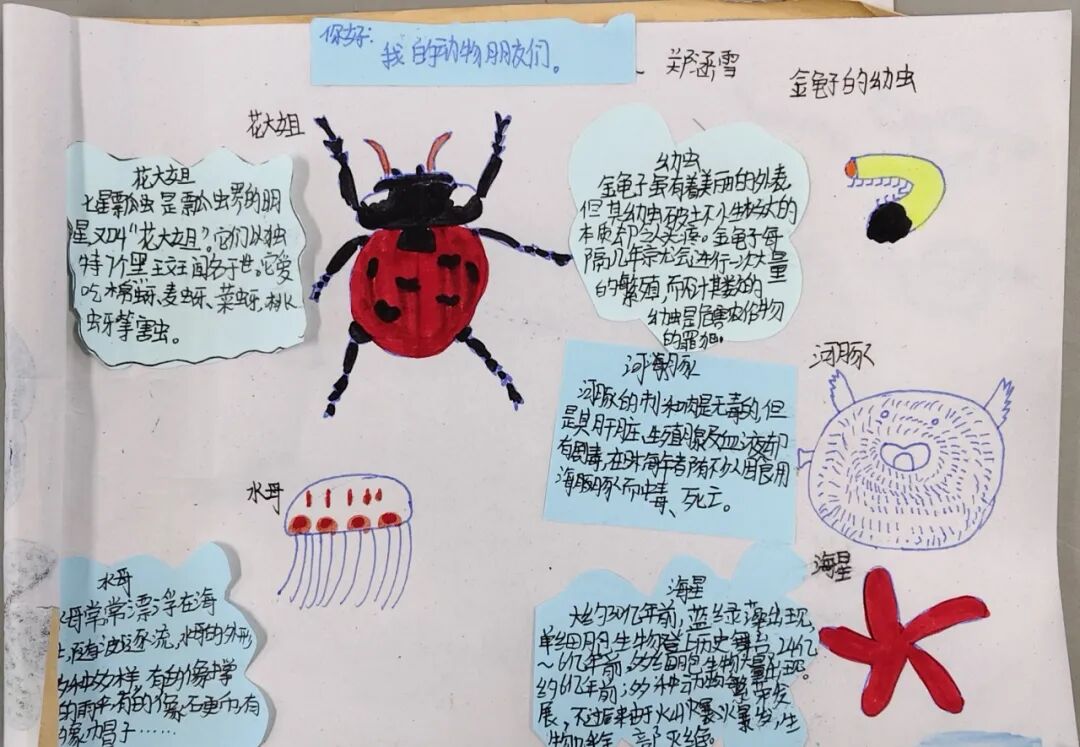 你好:
我的动物朋友们。
郑涵雪
金龟子的幼虫
花大姐
花大姐
七星瓢虫是瓢虫界的明
星又叫"花大姐"。它们以独
特了个黑斑闻名于世。它爱
吃棉蚜、麦蚜、菜蚜,桃
蚜等害虫。
幼虫
金龟子虽有着美丽的外表
但其幼虫破土
本质却令人头疼。金龟子每
隔几年就会进行一次大量
的繁殖,而
幼虫是危害农作物
的罪犯。
河豚
河豚
河豚的
是其肝脏、生殖腺及血液都
有剧毒,每年都有不少人因食用
海豚而中毒、死亡。
水母
水母
水母常常漂浮在海
上,随波逐流,水母的外形
多种多样,有的像
的雨伞,有的像
像帽子……
海星
海星
大约30亿年前,蓝绿藻出现,
单细胞生物登上历史舞台,24亿
~6亿年前,多细胞生物大量出现。
约6亿年前;多种动物繁
展,不过后来由于火山爆发,生
物